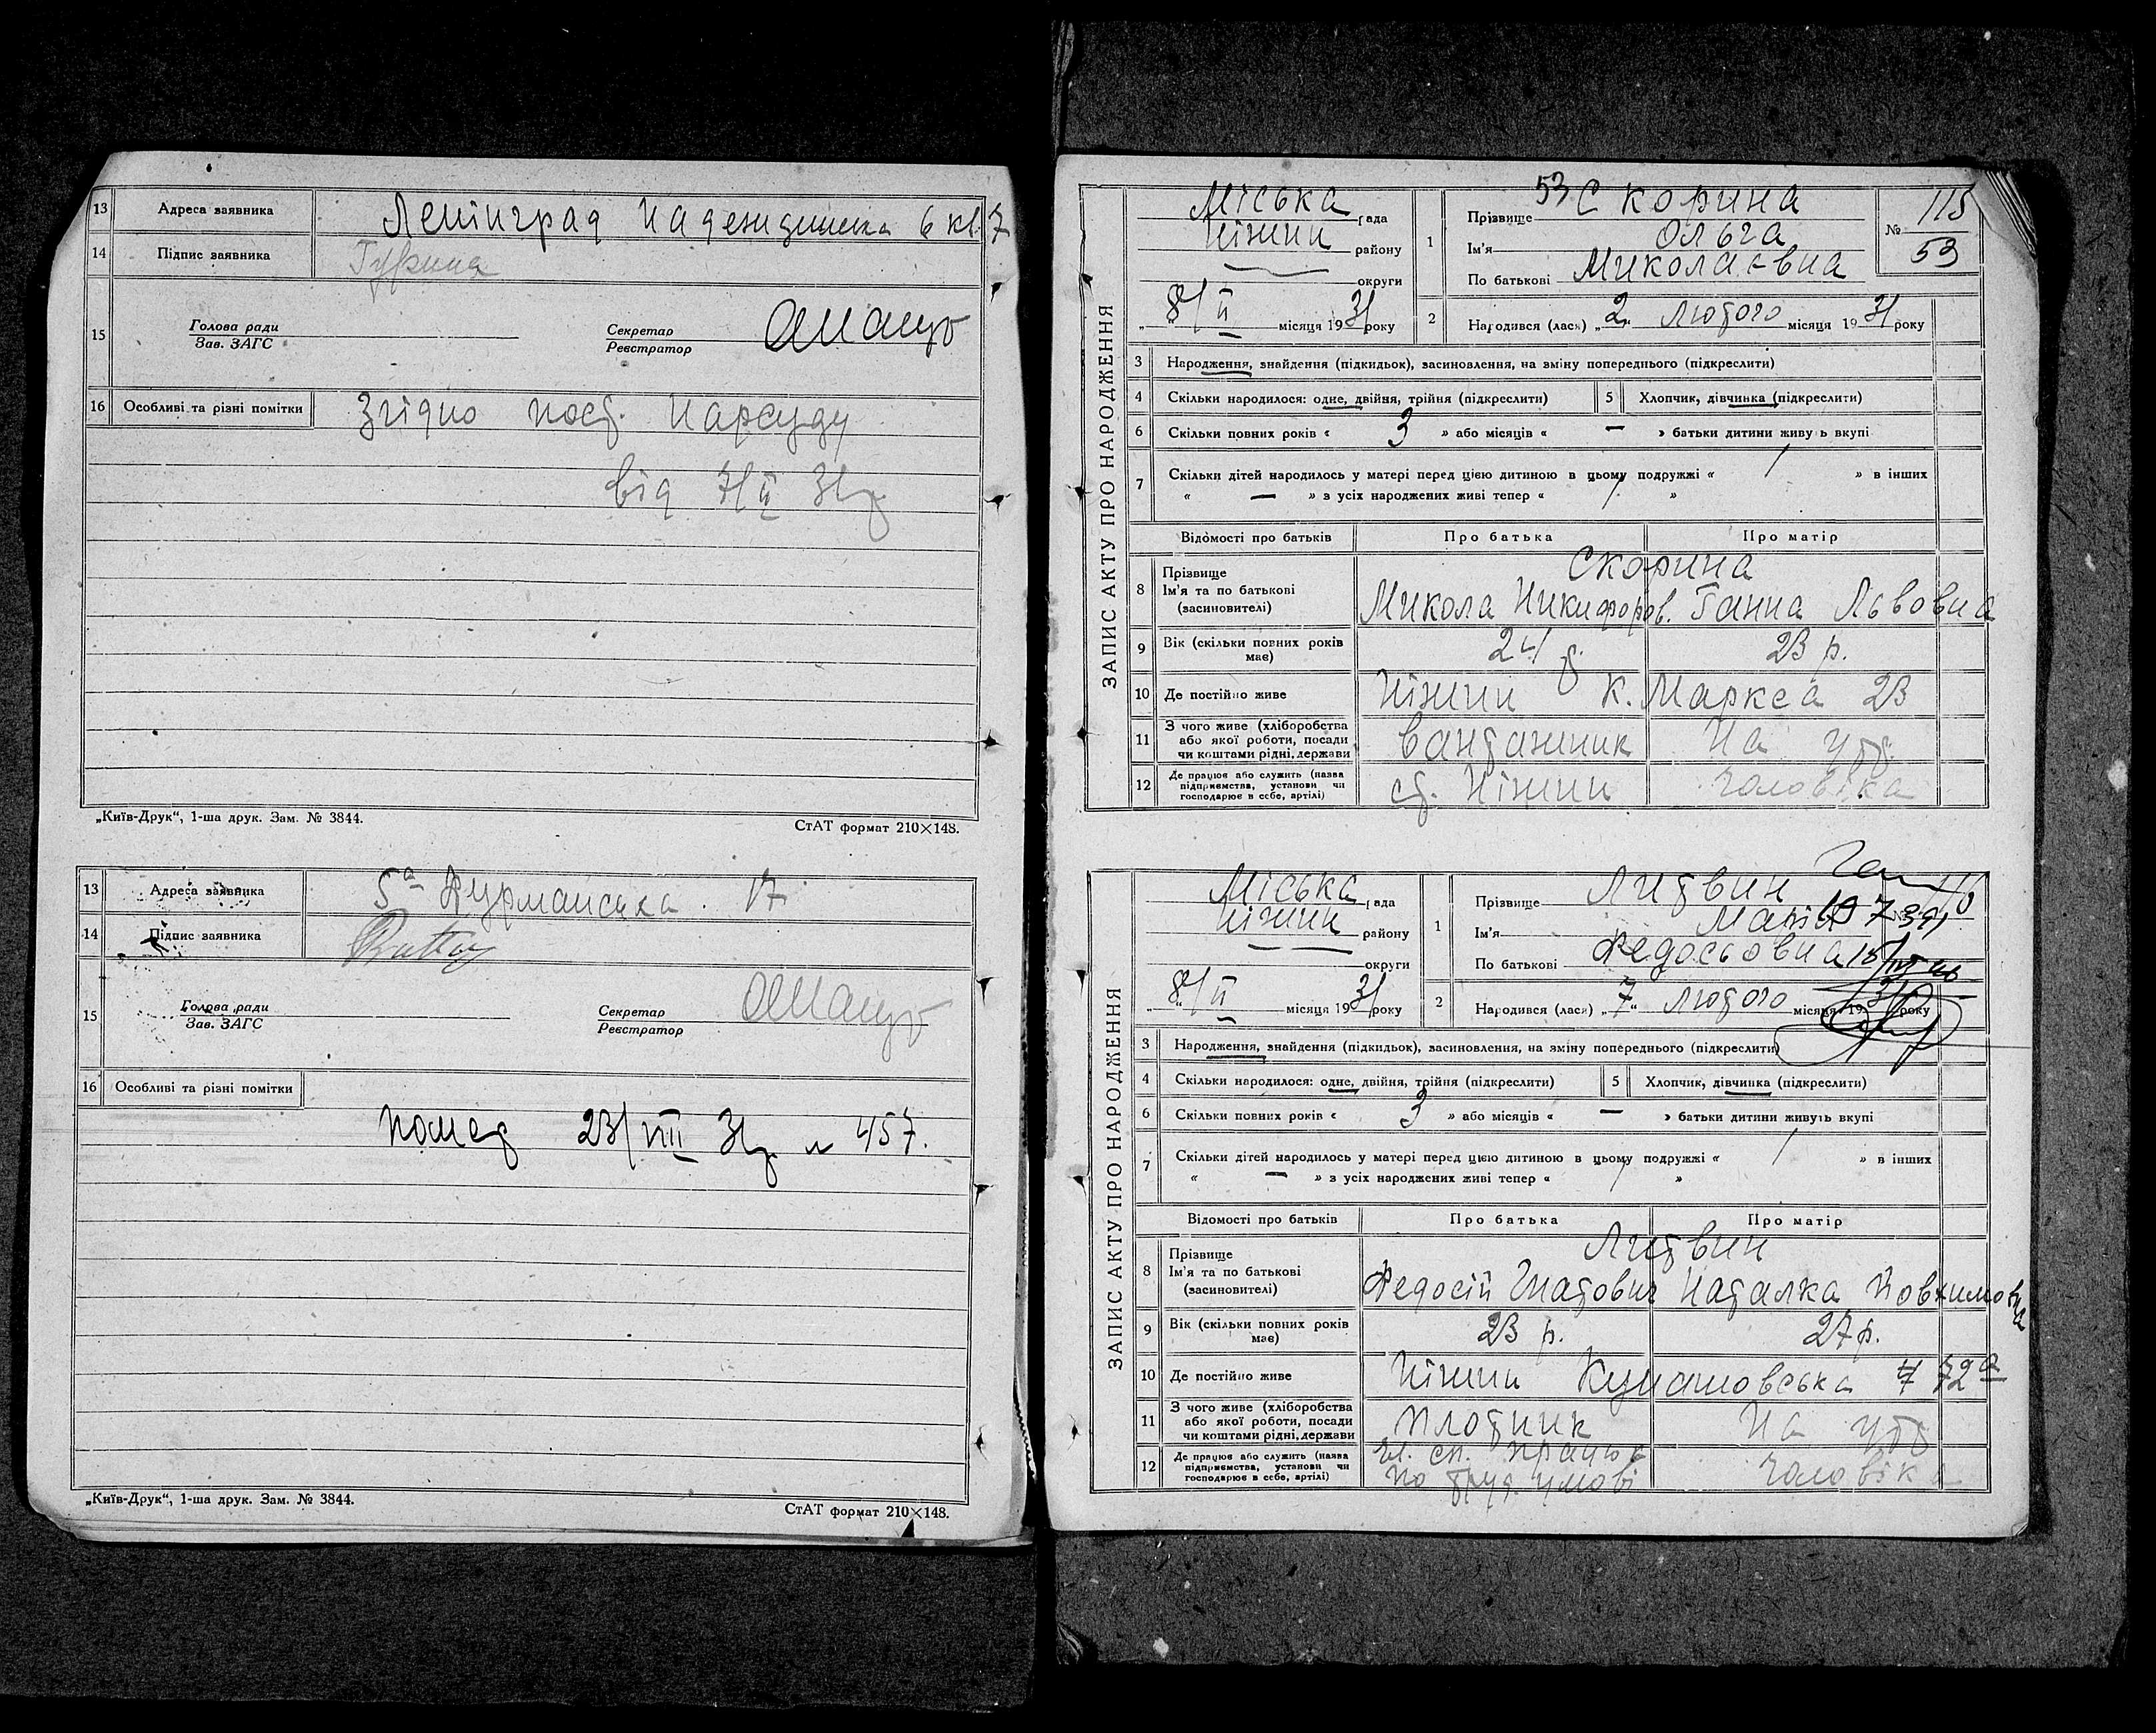 13 Адреса заявника Ленінград 6 кв. 7
14 Підпис заявника Гурина
15 Голова ради
Зав. ЗАГС
Секретар
Реєстратор
16 Особливі та різні помітки Згідно пост. Нарсуду
від 7/II 31 р
„Київ-Друк“, 1-ша друк. Зам. № 3844.
СтАТ формат 210×148.
13 Адреса заявника 17
14 Підпис заявника
15 Голова ради
Зав. ЗАГС
Секретар
Реєстратор
16 Особливі та різні помітки
помер 23/VIII 31 р № 457.
„Київ-Друк“, 1-ша друк. Зам. № 3844.
СтАТ формат 210×148.
ЗАПИС АКТУ ПРО НАРОДЖЕННЯ
Міська рада
Ніжин району
округи
8/II місяця 1931 року
53
1 Прізвище Скорина
Ім'я Ольга
По батькові Миколаєвна
№ 115
53
2 Народився (лася) „2“ лютого місяця 1931 року
3 Народження, знайдення (підкидьок), засиновлення, на зміну попереднього (підкреслити)
4 Скільки народилося: одне, двійня, трійня (підкреслити) 5 Хлопчик, дівчинка (підкреслити)
6 Скільки повних років « 3 » або місяців « — » батьки дитини живуть вкупі
7 Скільки дітей народилось у матері перед цією дитиною в цьому подружжі « 1 » в інших
« — » з усіх народжених живі тепер « 1 »
Відомості про батьків Про батька Про матір
8 Прізвище
Ім'я та по батькові
(засиновителі)
Скорина
Микола Никифоров. Ганна Львовна
9 Вік (скільки повних років має) 24 р. 23 р.
10 Де постійно живе Ніжин К. Маркса 23
11 З чого живе (хліборобства
або якої роботи, посади
чи коштами рідні, держави
вантажник На утр.
12 Де працює або служить (назва
підприємства, установи чи
господарює в себе, артілі)
ст. Ніжин чоловіка
ЗАПИС АКТУ ПРО НАРОДЖЕННЯ
Міська рада
Ніжин району
округи
8/II місяця 1931 року
1 Прізвище Литвин
Ім'я Марія
По батькові Федосьовна
2 Народився (лася) „7“ лютого місяця 1931 року
3 Народження, знайдення (підкидьок), засиновлення, на зміну попереднього (підкреслити)
4 Скільки народилося: одне, двійня, трійня (підкреслити) 5 Хлопчик, дівчинка (підкреслити)
6 Скільки повних років « 3 » або місяців « — » батьки дитини живуть вкупі
7 Скільки дітей народилось у матері перед цією дитиною в цьому подружжі « 1 » в інших
« — » з усіх народжених живі тепер « 1 »
Відомості про батьків Про батька Про матір
8 Прізвище
Ім'я та по батькові
(засиновителі)
Литвин
Федосій Гнатович Наталка Йовхимовна
9 Вік (скільки повних років має) 23 р. 27 р.
10 Де постійно живе Ніжин 72а
11 З чого живе (хліборобства
або якої роботи, посади
чи коштами рідні, держави
плотник На утр
12 Де працює або служить (назва
підприємства, установи чи
господарює в себе, артілі)
чл. сп. працює
по труд. умові чоловіка